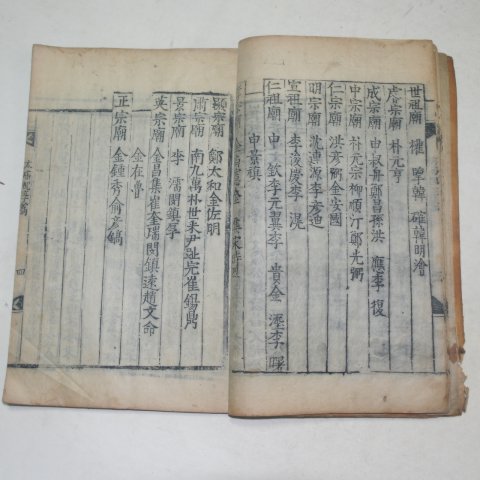 世祖廟 權 擥韓 確韓明澮
睿宗廟 朴元亨
成宗廟 申叔舟鄭昌孫洪 應李 復
中宗廟 朴元宗柳順汀鄭光弼
仁宗廟 洪彦弼金安國
明宗廟 沈連源李彦迪
宣祖廟 李浚慶李 滉
仁祖廟 申 欽李元翼李 貴金 瑬李 曙
申景禛
顯宗廟 鄭太和金佐明
肅宗廟 南九萬朴世采尹趾完崔錫鼎
景宗廟 李 濡閔鎭厚
英宗廟 金昌集崔奎瑞閔鎭遠趙文命
金在魯
正宗廟 金鍾秀兪彦鎬
四